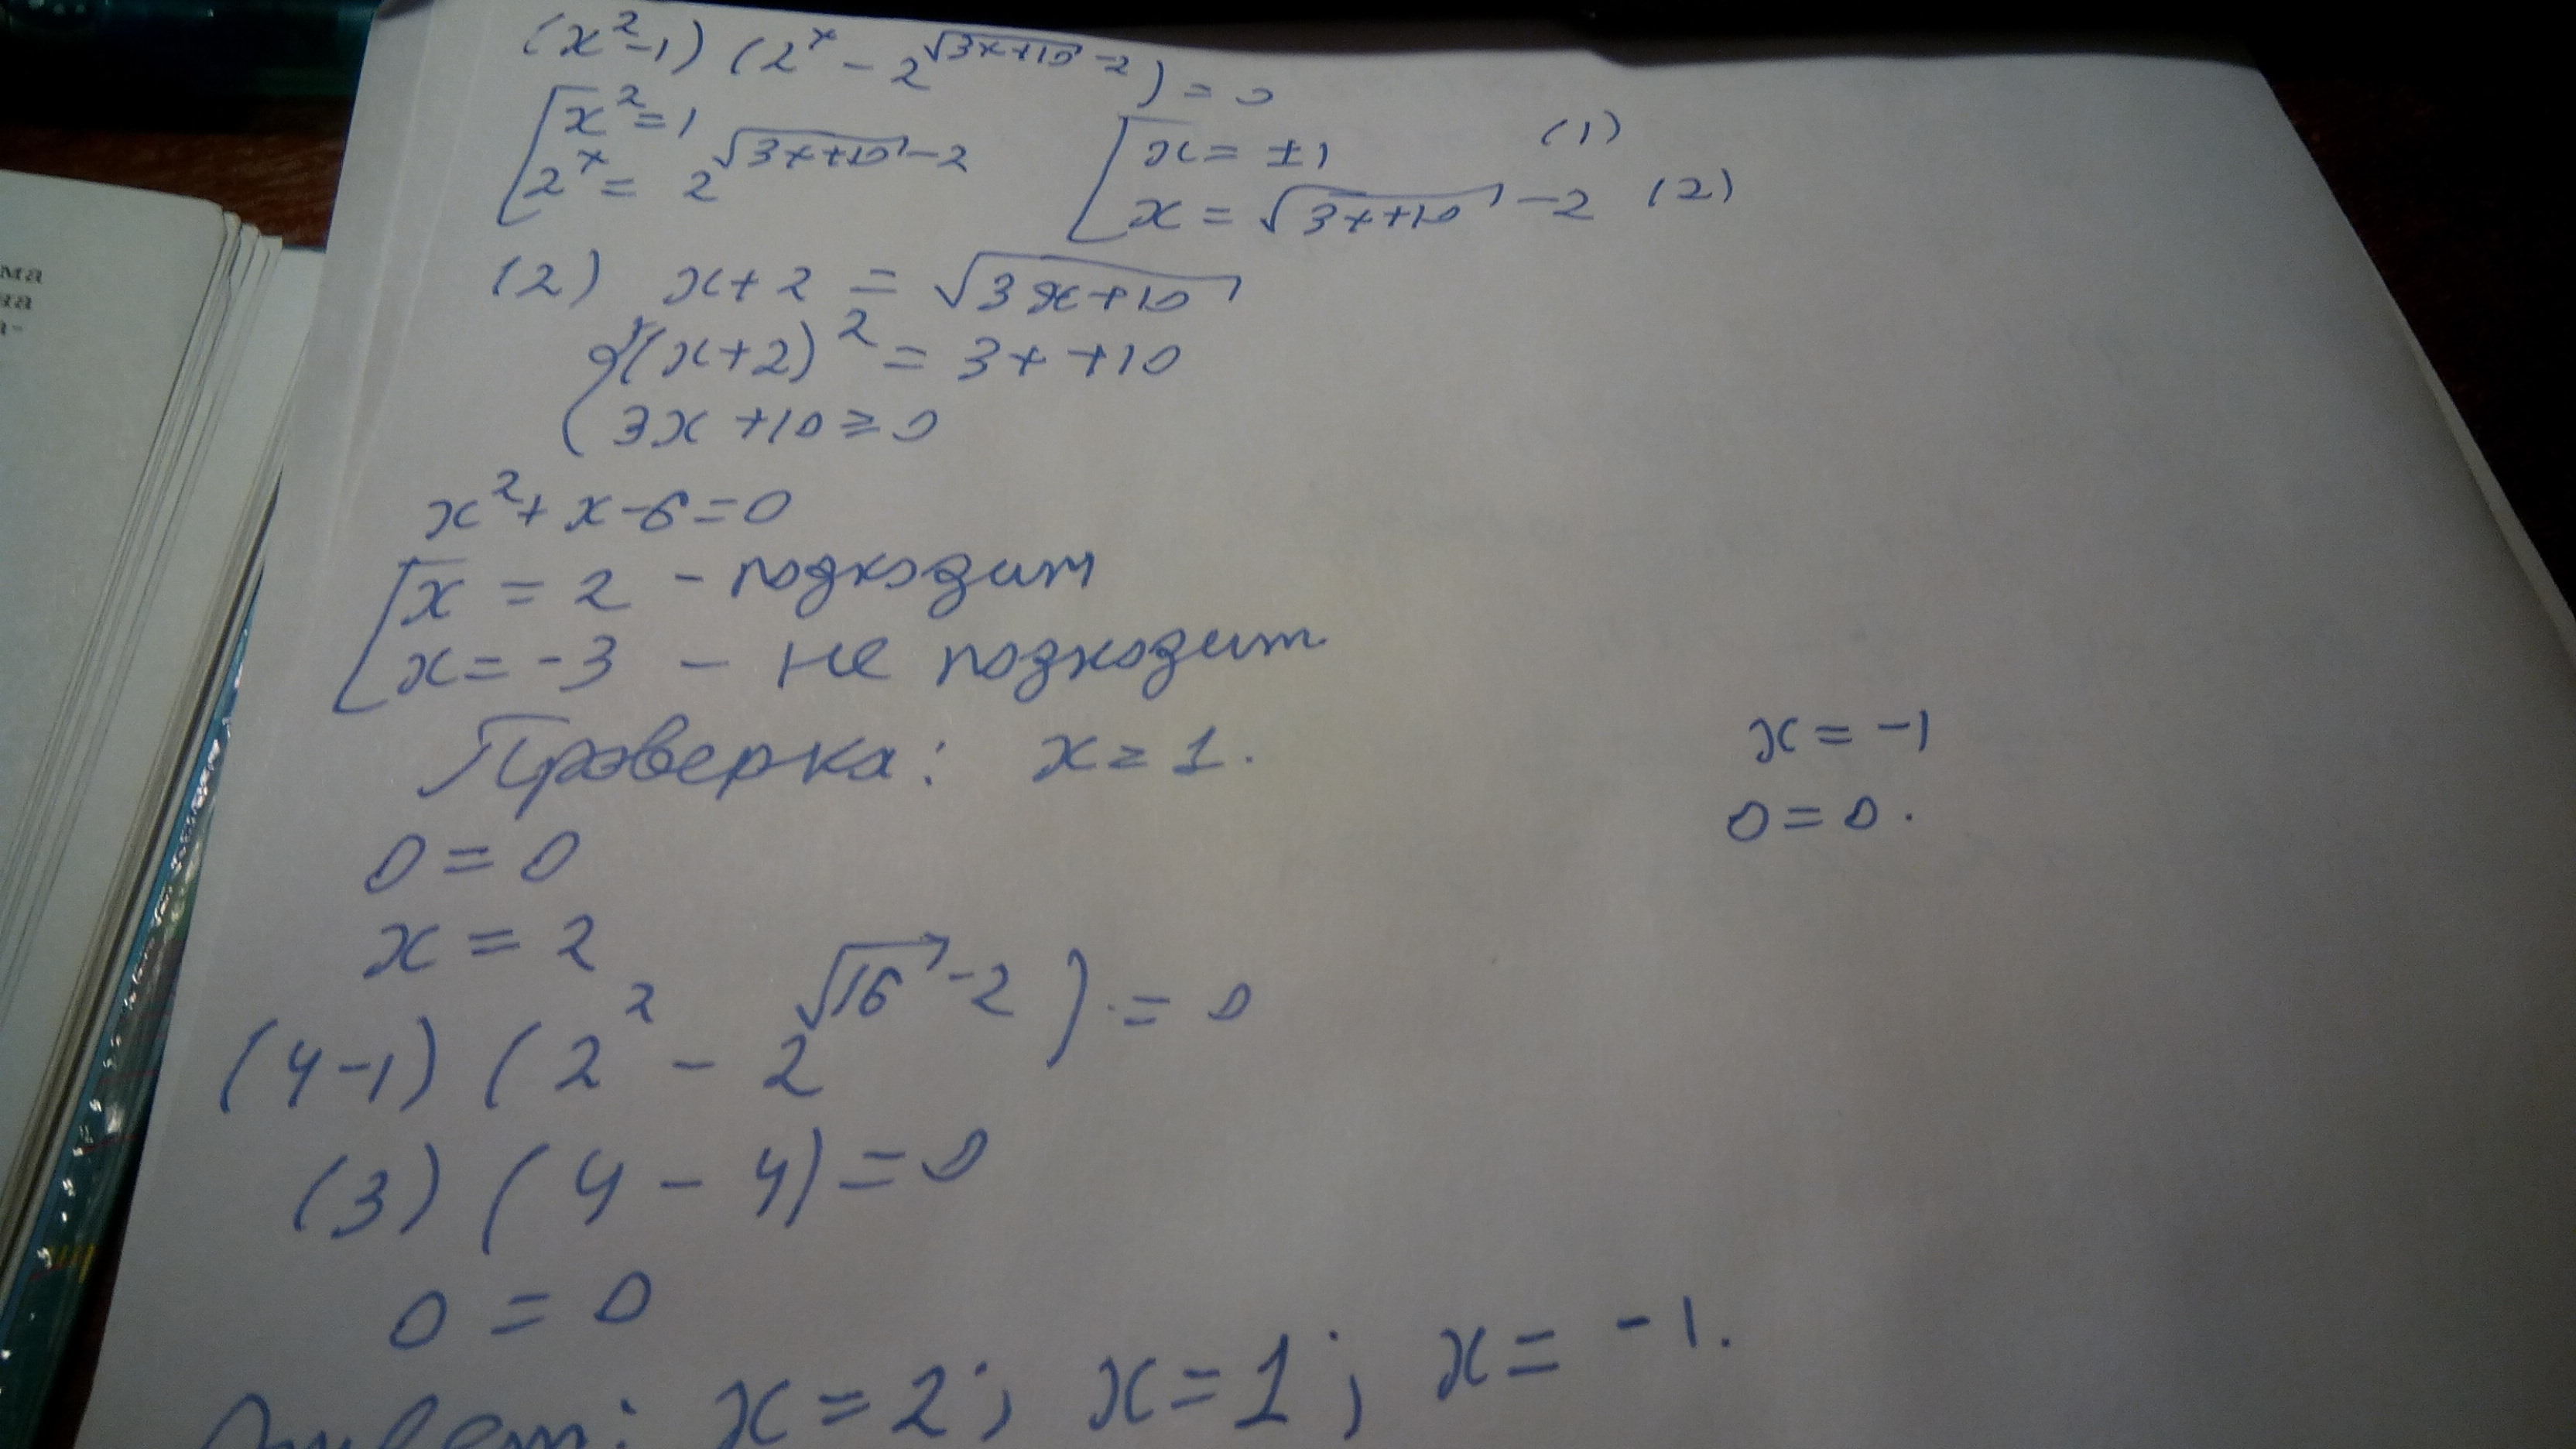 ма
на
а-
(x²-1) (2ˣ - 2^(√(3x+10) -2)) = 0
[x² = 1 [x = ±1 (1)
[2ˣ = 2^(√(3x+10) -2) [x = √(3x+10) -2 (2)
(2) x+2 = √(3x+10)
{(x+2)² = 3x+10
{3x+10 ≥ 0
x² + x - 6 = 0
[x = 2 - подходит
[x = -3 - не подходит
Проверка: x = 1. x = -1
0 = 0 0 = 0.
x = 2
(4-1) (2² - 2^(√16 -2)) = 0
(3) (4 - 4) = 0
0 = 0
Ответ: x = 2; x = 1; x = -1.